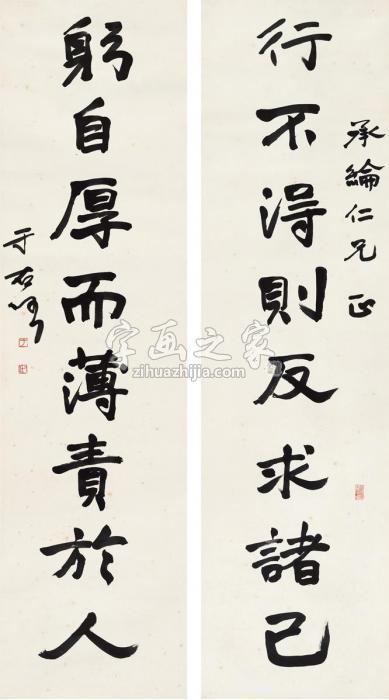 承綸仁兄正
行不得則反求諸己
躬自厚而薄責於人
于右任
字画之家
zihuazhijia.com